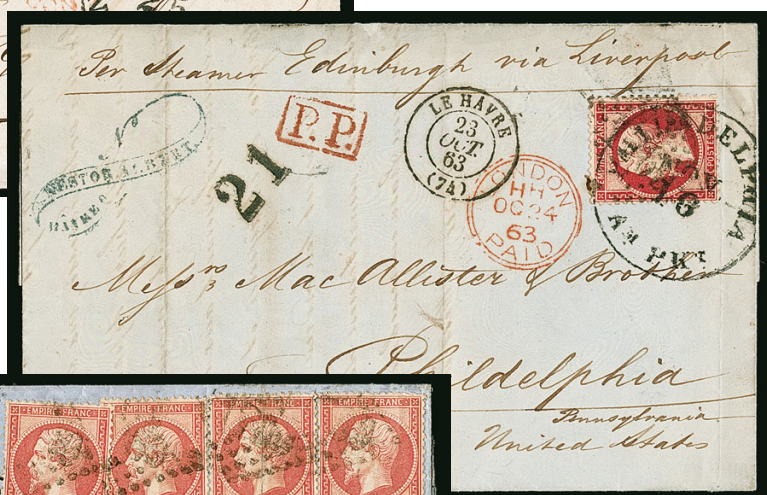 Per Steamer Edinburgh via Liverpool
P.P.
21
LE HAVRE
23
OCT.
63
(74)
LONDON
HH
OC 24
63
PAID
PHILADELPHIA
16
AM. PKT.
EMPIRE FRANC
POSTES
Messrs Mac Allister & Brother
Philadelphia
Pennsylvania
United States
EMPIRE FRANC
EMPIRE FRANC
EMPIRE FRANC
EMPIRE FRANC